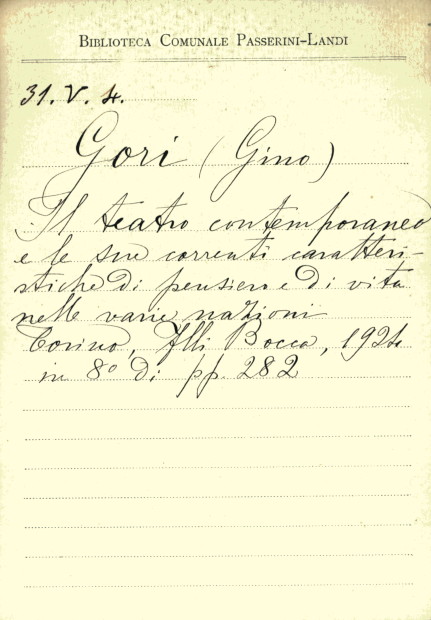 BIBLIOTECA COMUNALE PASSERINI-LANDI
31. V. 4.
Gori (Gino)
Il teatro contemporaneo
e le sue correnti caratteri-
stiche di pensiero e di vita
nelle varie nazioni
Torino, Flli Bocca, 1924
in 8º di pp. 282